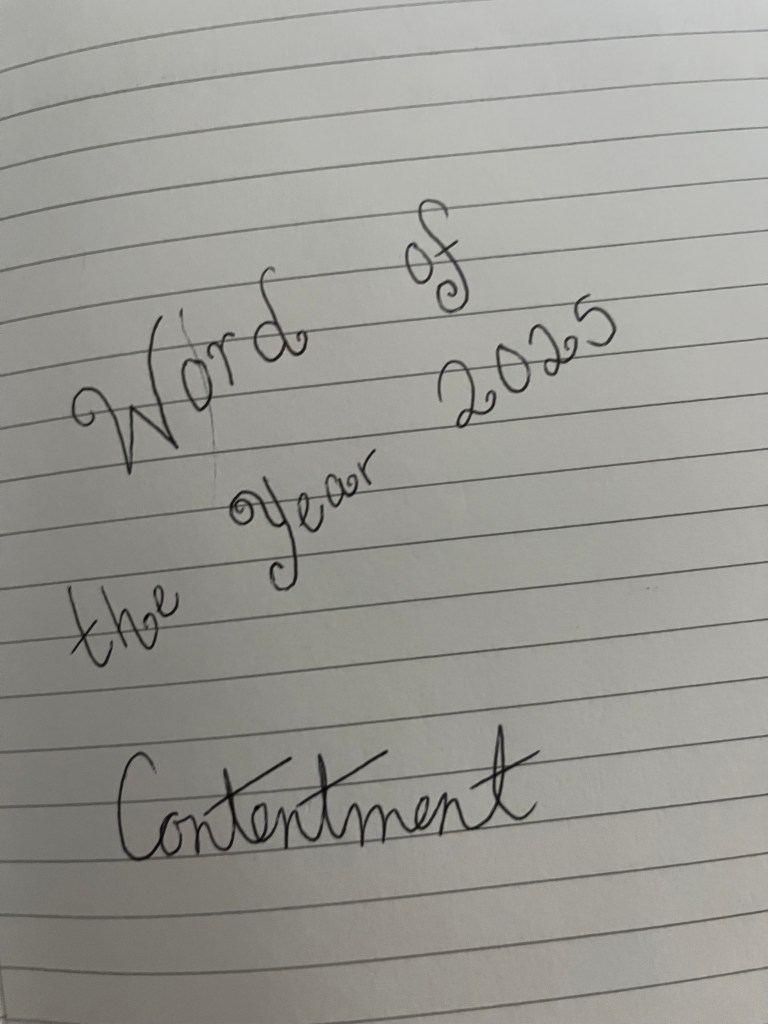 Word of
the Year 2025
Contentment